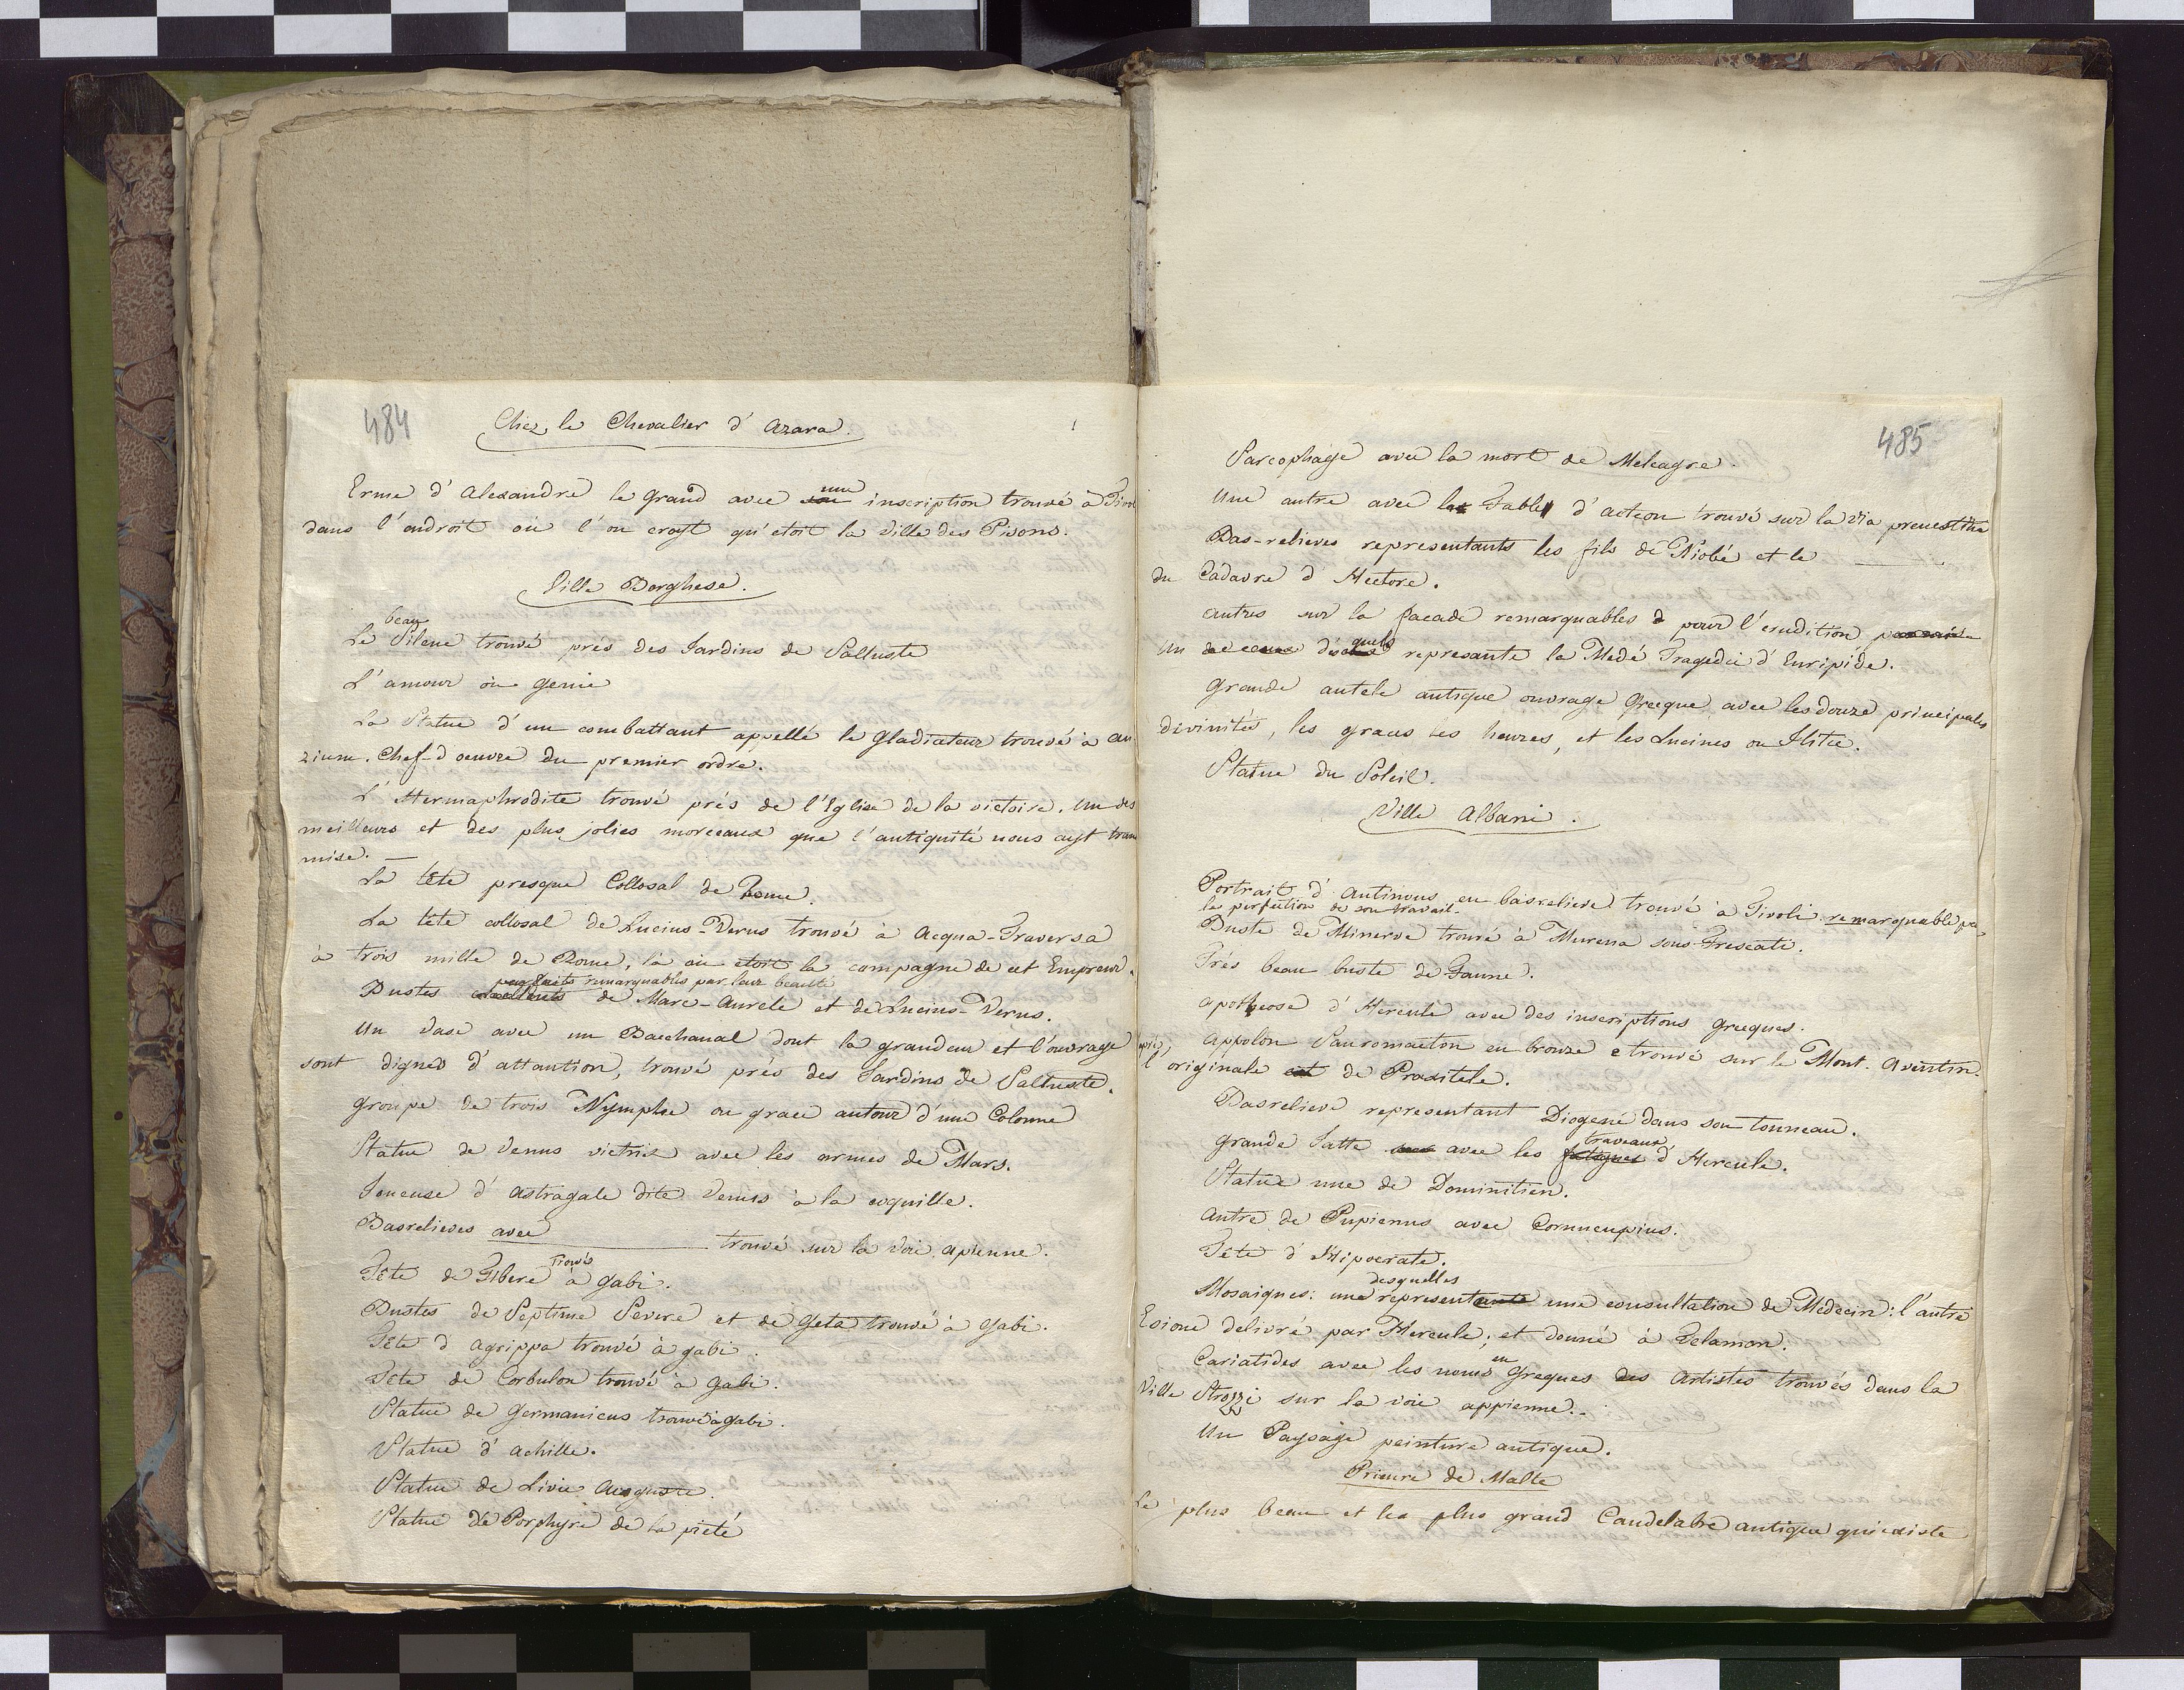 484
Chez le Chevalier d'Azara.
Erme d'Alexandre le grand avec une inscription trouvé à Tivol
dans l'endroit où l'on croyt qu'etoit la ville des Pisons.
Ville Borghese.
beau
Le Silene trouvé prés des Jardins de Salluste
L'amour ou Genie
La Statue d'un combattant appellé le Gladiateur trouvé à An
zium. Chef-d'oeuvre du premier ordre.
L'Hermaphrodite trouvé prés de l'Eglise de la victoire. Un des
meilleurs et des plus jolies morceaux que l'antiquité nous ayt trans
mise.
La tête presque Collosal de Rome.
La tête collosal de Lucius-Verus trouvé à Acqua-Traversa
à trois mille de Rome, là où etoit la campagne de cet Empreur.
parfaits remarquables par leur beauté
Bustes excellents de Marc-Aurele et de Lucius-Verus.
Un Vase avec un Bacchanal dont la grandeur et l'ouvrage
sont dignes d'attantion, trouvé prés des Jardins de Salluste.
Groupe de trois Nymphe ou grace autour d'une Colonne
Statue de Venus victrix avec les armes de Mars.
Joueuse d'astragale dite Venus à la coquille.
Basrelieves avec trouvé sur la Voie apienne.
Trouvé
Tête de Tibere à gabi.
Bustes de Septime Severe et de Geta trouvé à gabi.
Tête d'agrippa trouvé à gabi.
Tête de Corbulon trouvé à gabi.
Statue de Germanicus trouvé à gabi.
Statue d'achille.
Statue de Livie Auguste.
Statue de Porphyre de la pieté
485
Sarcophage avec la mort de Meleagre.
Une autre avec la Fable d'acteon trouvé sur la Via prenestina
Bas-relieves representants les fils de Niobé et le
du Cadavre d'Hectore.
autres sur la facade remarquables pour l'erudition
quels
Un des represante la Medé Tragedie d'Euripide.
Grande autele antique ouvrage Grecque avec les douze principales
divinités, les graces les heures, et les Lucines ou Ilitie.
Statue du Soleil.
Ville Albani.
Portrait d'Antinous en basrelieve trouvé à Tivoli remarquable par
la perfection de son travail.
Buste de Minerve trouvé à Murena sous Frescati.
Trés beau buste de Faune.
Apotheose d'Hercule avec des inscriptions grecques.
Appolon Sauromacton en bronze trouvé sur le Mont-Aventin.
l'originale est de Praxitele.
Basrelieve representant Diogene dans son tonneau.
travaux
Grande Tatte avec les fatigues d'Hercule.
Statue une de Dominitien.
Autre de Pupienus avec Cornucupius.
Tête d'Hipocrate.
desquelles
Mosaiques: une representante une consultation de Medecin: l'autre
Esione delivré par Hercule; et donné à Telamon.
en
Cariatides avec les noms Greques des Artistes trouvés dans la
Ville Strozzi sur la voie appienne.
Un Paysage peinture antique.
Prieure de Malte
Le plus beau et les plus grand Candelabre antique qui existe